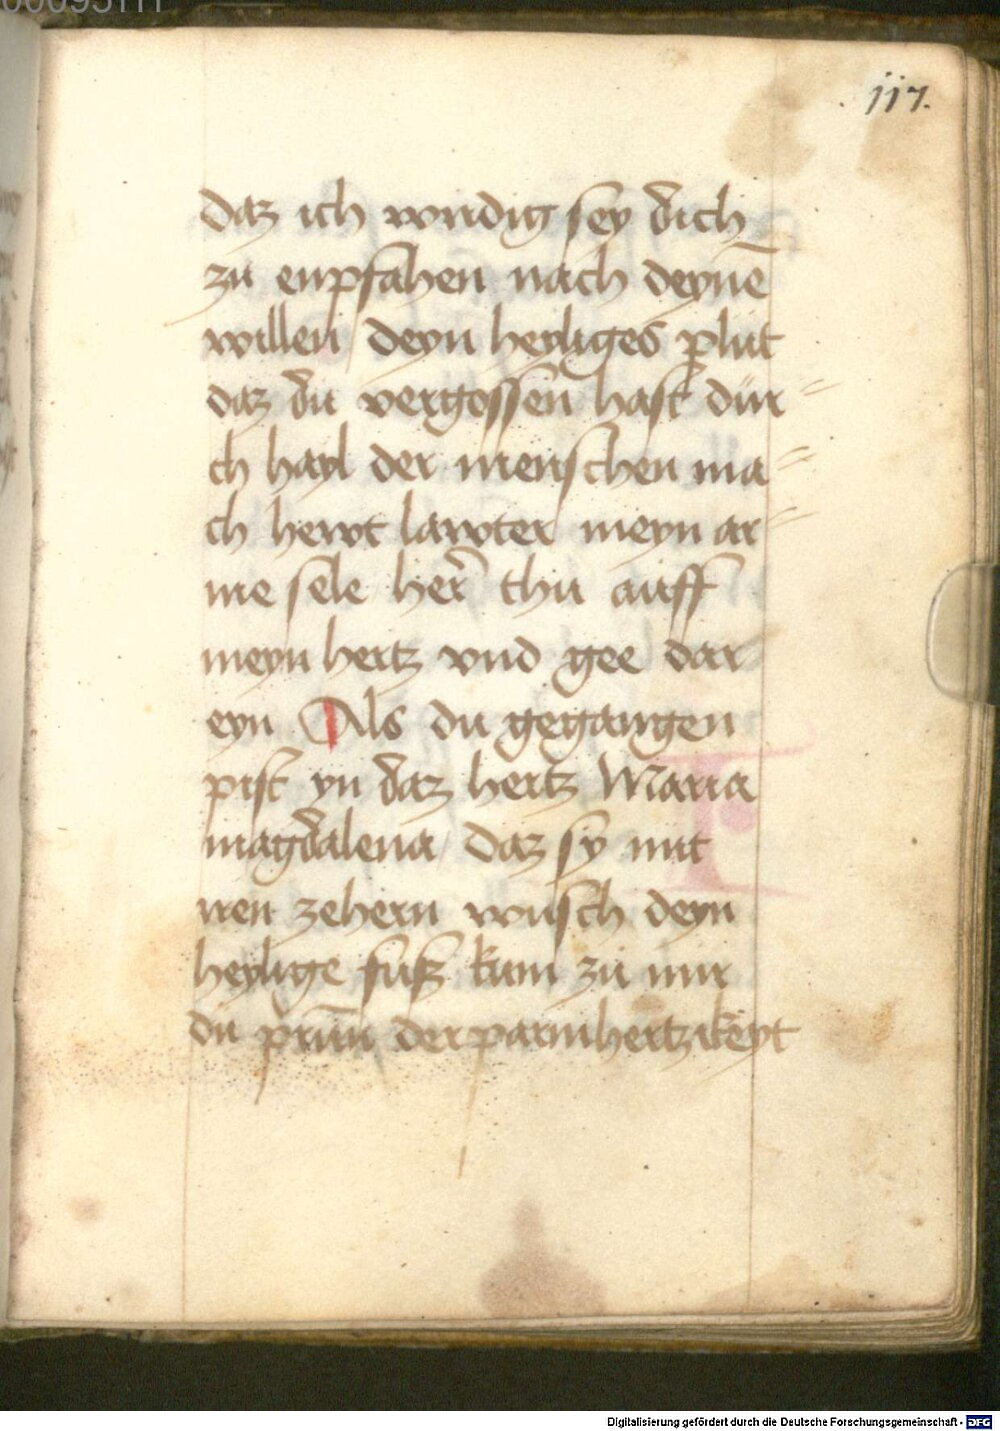 117.
daz ich wirdig sey dich
zu enpfahen nach deynē
willen deyn heyliges plut
daz du vergossen hast dur=
ch hayl der menschen ma=
ch hewt lawter meyn ar=
me sele her̄ thu auff
meyn hertz vnd gee dar
eyn Als du gegangen
pist yn daz hertz Maria
magdalena daz sy mit
iren zehern wusch deyn
heylige fusz kum zu mir
du prun̄ der parmhertzikeyt
Digitalisierung gefördert durch die Deutsche Forschungsgemeinschaft - DFG